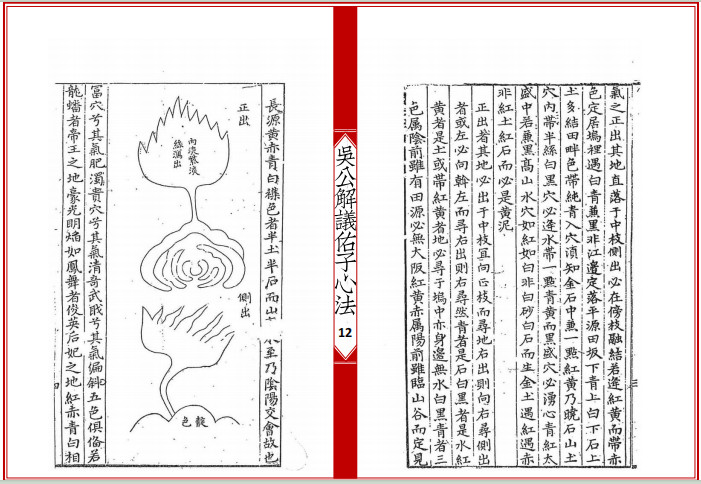 氣之正出其地直落于中枝側出必在傍枝融結若逢紅黃而帶赤
色定居塢裡遇白青兼黑非江邊定落平源田坂下青上白下石上
土多結田畔色帶純青入穴湏知金石中兼一點紅黃乃曉石山土
穴內帶半絲白黑穴必逢水帶一點青黃而黑盛穴必湧心青紅太
盛中若兼黑高山水穴如紅如白非白砂白石而生金土遇紅遇赤
非紅土紅石而必是黃泥
正出者其地必出于中枝宜向正枝而尋地右出則向右尋側出
者或左必向斡左而尋右出則右尋然青者是石白黑者是水紅
黃者是土或帶紅黃者地必尋于塢中亦身邊無水白黑青者三
色属陰前雖有田源必無大阪紅黃赤属陽前雖臨山谷而定見
三
吳公解議佑子心法
12
長源黃赤青白襍色者半土半石而山水至乃陰陽交會故也
正出
內痰紫液
絲漏出
側出
靛色
富穴兮其氣肥濁貴穴兮其氣清奇武戝兮其氣偏斜五色俱俻若
龍蟠者帝王之地豪光明焔如鳳舞者俊英后妃之地紅赤青白相